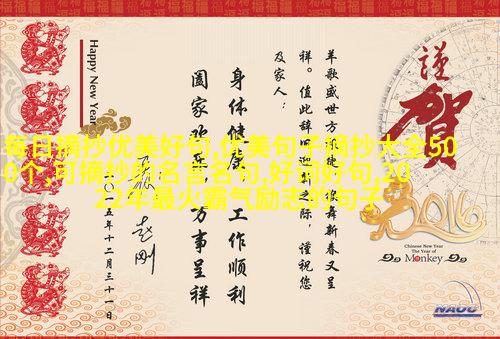 謹
賀
2016
Chinese New Year
The Year of
Monkey
NAOC
Happy New Year
羊歌盛世方 舞新春又呈
祥。值此辞旧迎新之际，谨祝您
及家人：
身体健康 工作顺利
阖家欢乐 万事呈祥
一五年十二月三十一日
每日摘抄优美好句,优美句子摘抄大全50
0个,可摘抄的名言名句,好词好句,20
22年最火霸气励志的句子